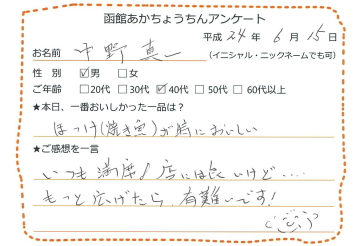 函館あかちょうちんアンケート
平成 24 年 6 月 15 日
お名前 中野 真一 (イニシャル・ニックネームでも可)
性 別 ☑男 □女
ご年齢 □20代 □30代 ☑40代 □50代 □60代以上
★本日、一番おいしかった一品は?
ほっけ(焼き魚)が特においしい
★ご感想を一言
いつも満席! 店には良いけど....
もっと広げたら、有難いです!